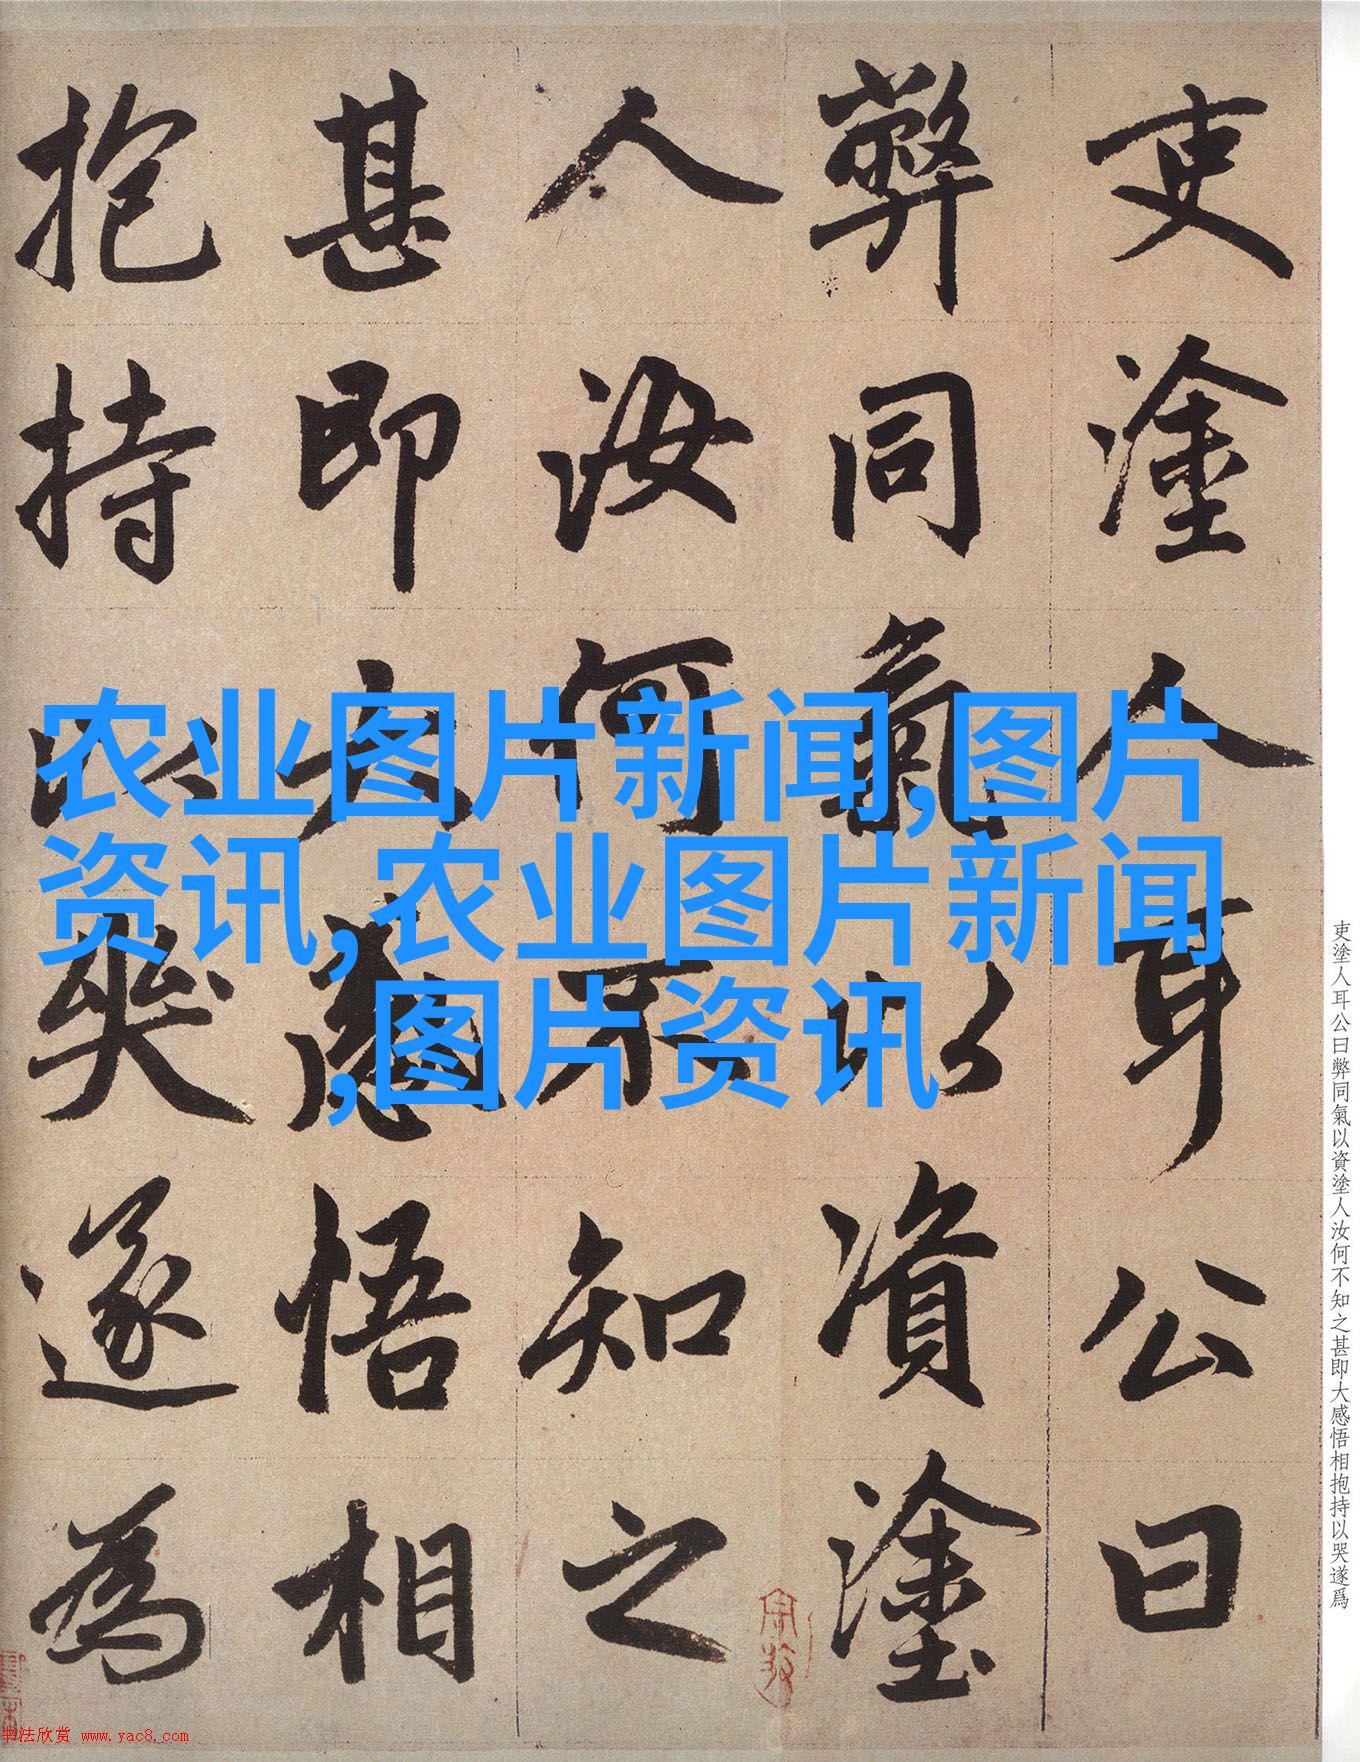 吏塗人耳公曰
弊同氣以資塗
人汝何不知之
甚即大感悟相
抱持以哭遂為
农业图片新闻,图片
资讯,农业图片新闻
,图片资讯
吏塗人耳公曰弊同氣以資塗人汝何不知之甚即大感悟相抱持以哭遂爲
书法欣赏 www.yac8.com